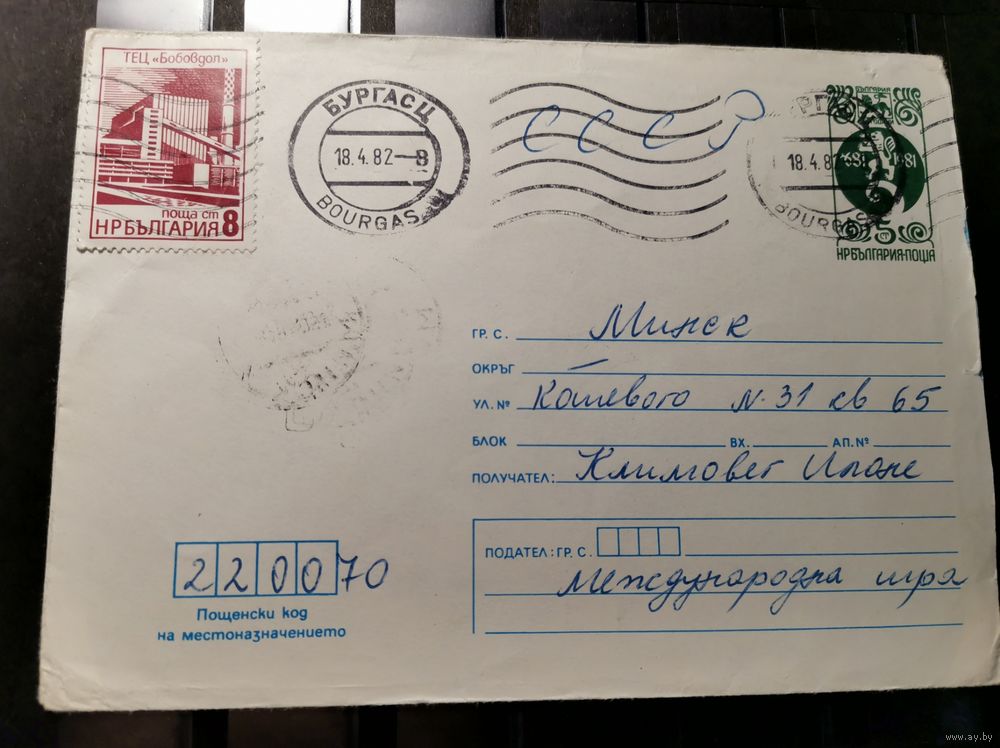 ТЕЦ «Бобовдол»
поща ст 8
НРБЪЛГАРИЯ
БУРГАС Ц
18.4.82-8
BOURGAS
СССР
18.4.82
BOURGAS
БЪЛГАРИЯ
1981
5
НРБЪЛГАРИЯ·ПОЩА
ГР. С. Минск
ОКРЪГ
УЛ. № Кошевого N. 31 кв 65
БЛОК ВХ. АП. №
ПОЛУЧАТЕЛ: Климовет
ПОДАТЕЛ: ГР. С.
Международна игра
220070
Пощенски код
на местоназначението
www.ay.by